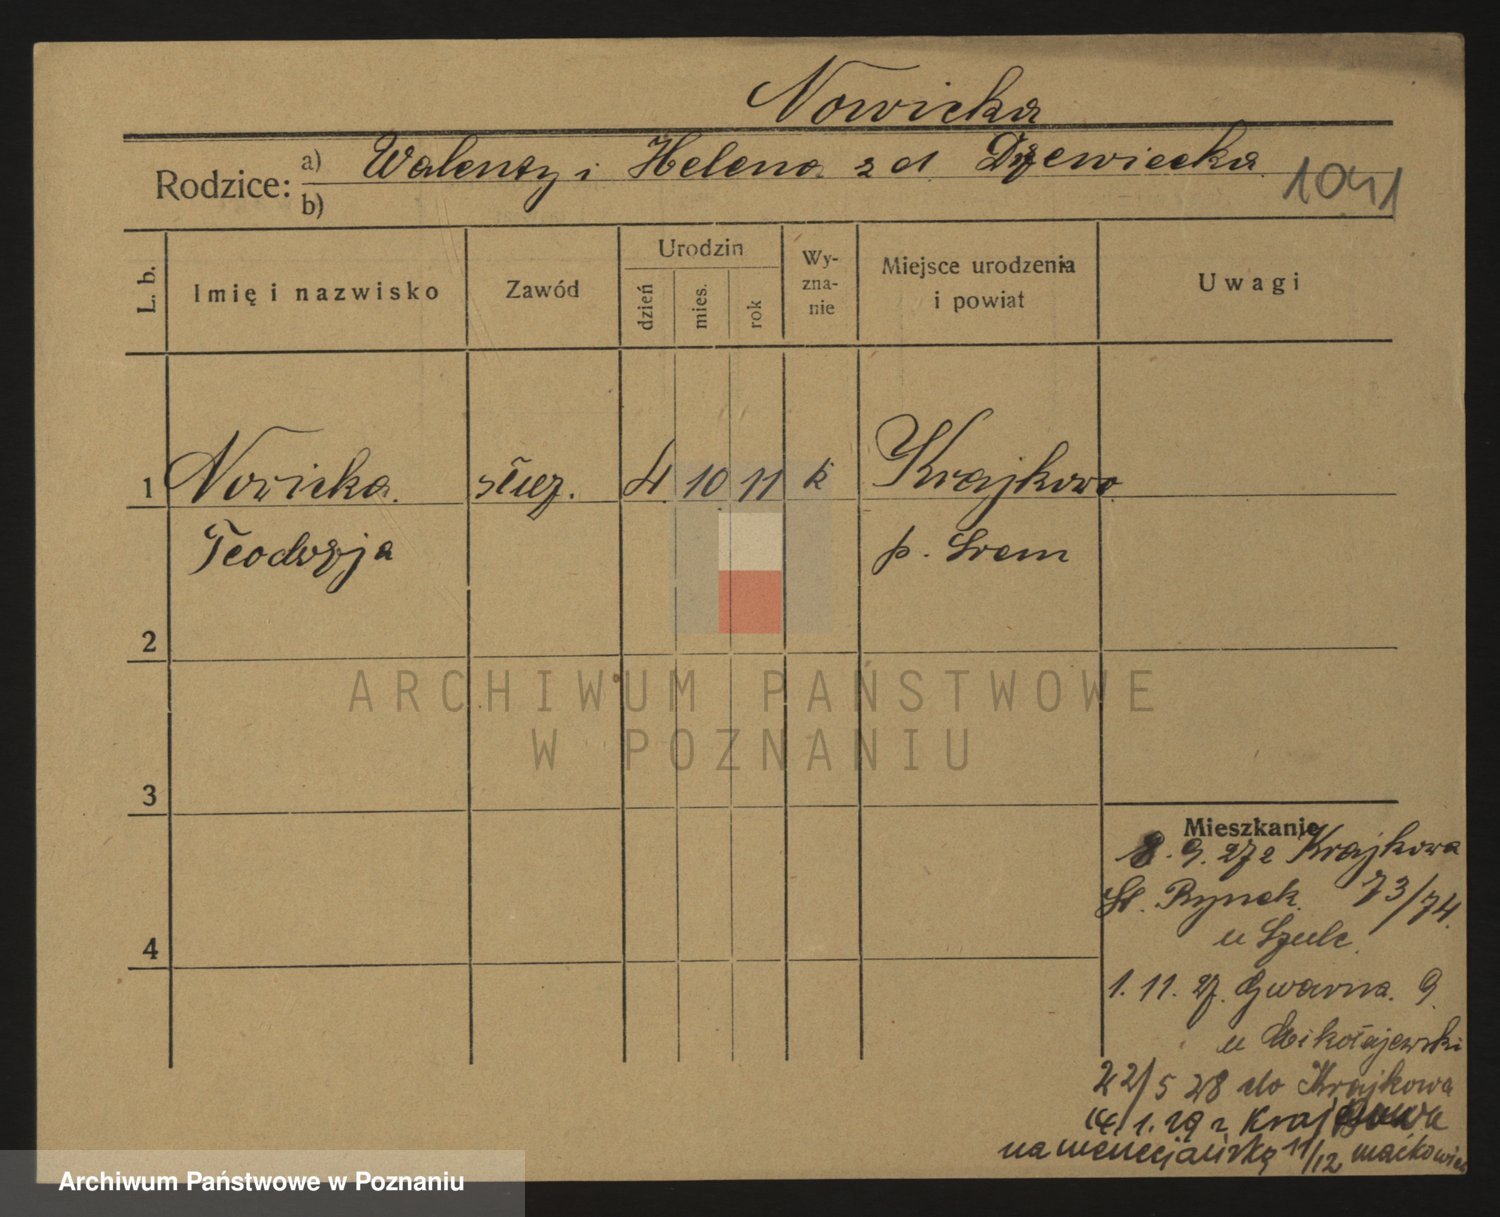 Nowicka
Rodzice: a) Walenty i Helena z d. Drzewiecka
b)
1041
L. b.
Imię i nazwisko
Zawód
Urodzin
dzień
mies.
rok
Wy-
zna-
nie
Miejsce urodzenia
i powiat
Uwagi
1 Nowicka służ. 4 10 11 k Krajkowo
Teodozja p. Śrem
2
3
4
Mieszkanie
8. 9. 27 z Krajkowa
St. Rynek 73/74.
u Szulc.
1. 11. 27. Gwarna 9
u Mikołajewski
22/5 28 do Krajkowa
14. 1. 29 z Krajkowa
na wenecjańską 11/12
ARCHIWUM PAŃSTWOWE
W POZNANIU
Archiwum Państwowe w Poznaniu